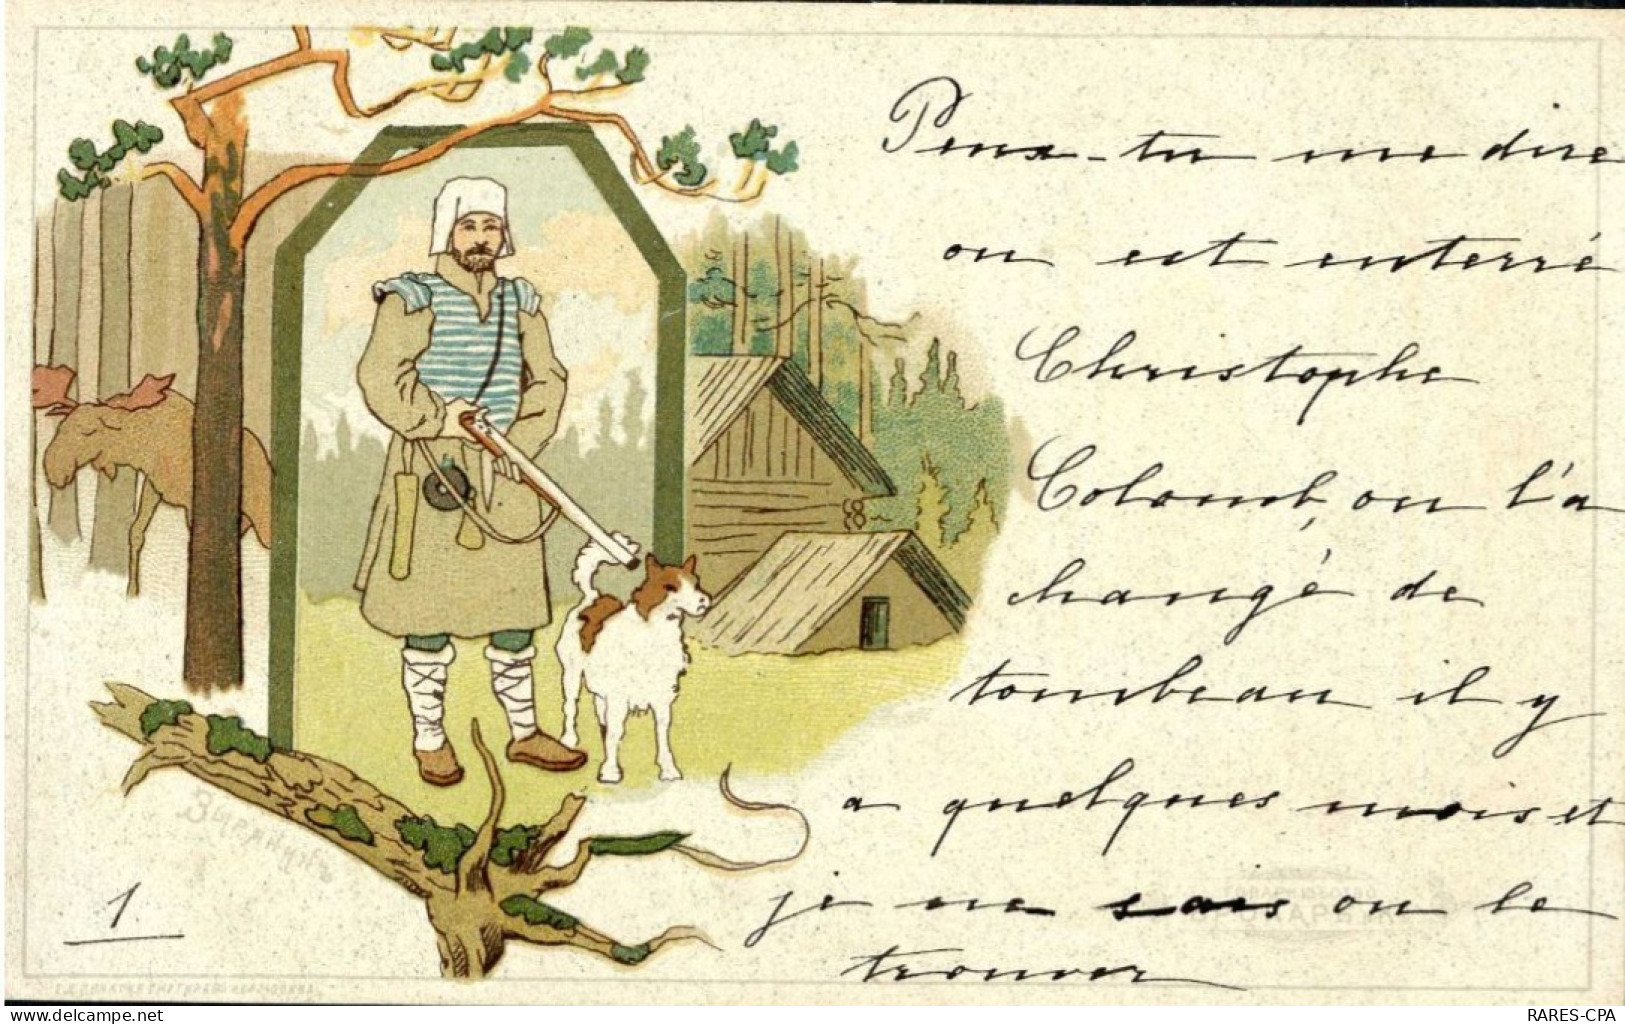 Peux-tu me dire
ou est enterré
Christophe
Colomb, on l'a
changé de
tombeau il y
a quelques mois et
je ne sais ou le
trouver
1
RARES-CPA